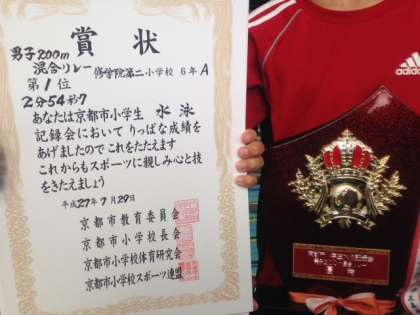 賞状
男子200m
混合リレー 修学院第二小学校 6年A
第1位
2分54秒7
あなたは京都市小学生 水泳
記録会において りっぱな成績を
あげましたので これをたたえます
これからもスポーツに親しみ心と技
をきたえましょう
平成27年7月29日
京都市教育委員会
京都市小学校長会
京都市小学校体育研究会
京都市小学校スポーツ連盟
adidas